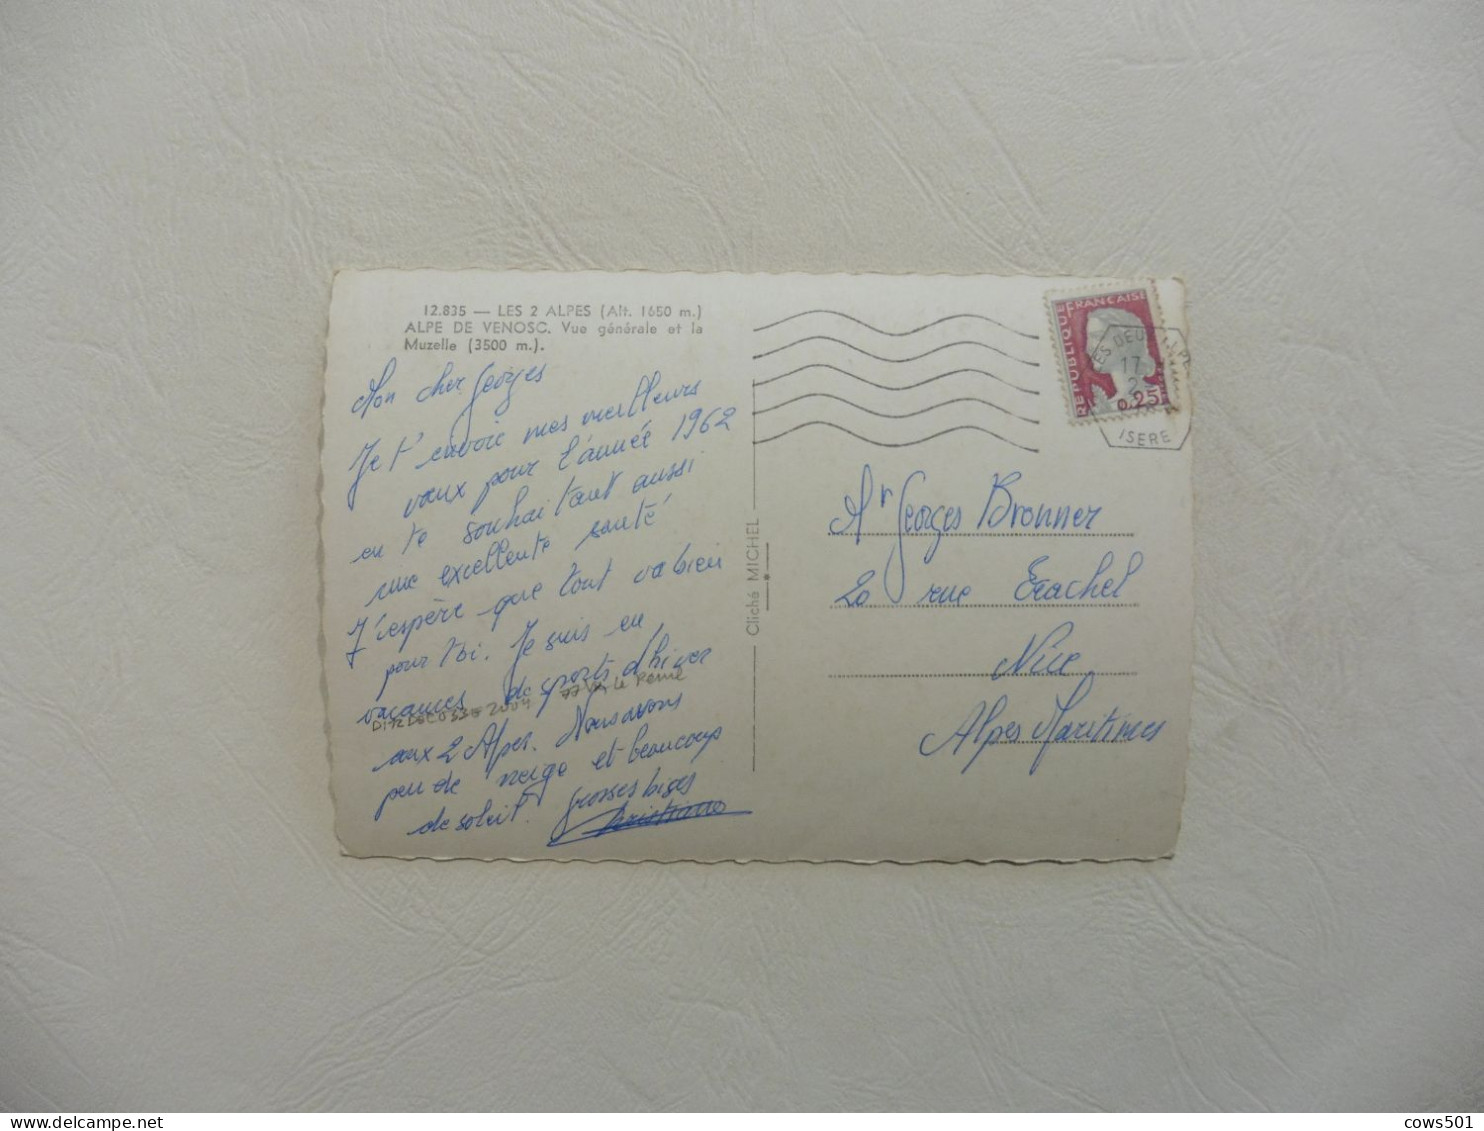 12.835 — LES 2 ALPES (Alt. 1650 m.)
ALPE DE VENOSC. Vue générale et la
Muzelle (3500 m.).
Mon cher Georges
Je t'envoie mes meilleurs
vœux pour l'année 1962
en te souhaitant aussi
une excellente santé
J'espère que tout va bien
pour toi. Je suis en
vacances de sports d'hiver
aux 2 Alpes. Nous avons
peu de neige et beaucoup
de soleil. Grosses bises
Christiane
Cliché MICHEL
REPUBLIQUE FRANÇAISE
0,25
17
2
ISERE
Mr Georges Bronner
20 rue Trachel
Nice
Alpes Maritimes
cows501